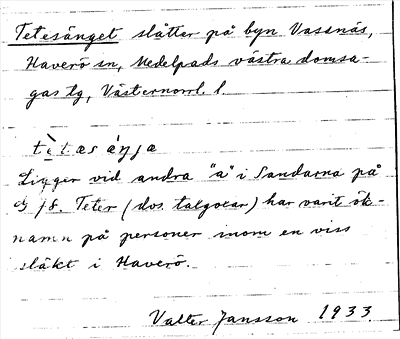 Tetesänget slåtter på byn Vassnäs,
Haverö sn, Medelpads västra domsa-
gas tg, Västernorrl. l.
Ligger vid andra "a" i Sandarna på
18. Teter (dvs. talgoxar) har varit ök-
namn på personer inom en viss
släkt i Haverö.
Valter Jansson 1933